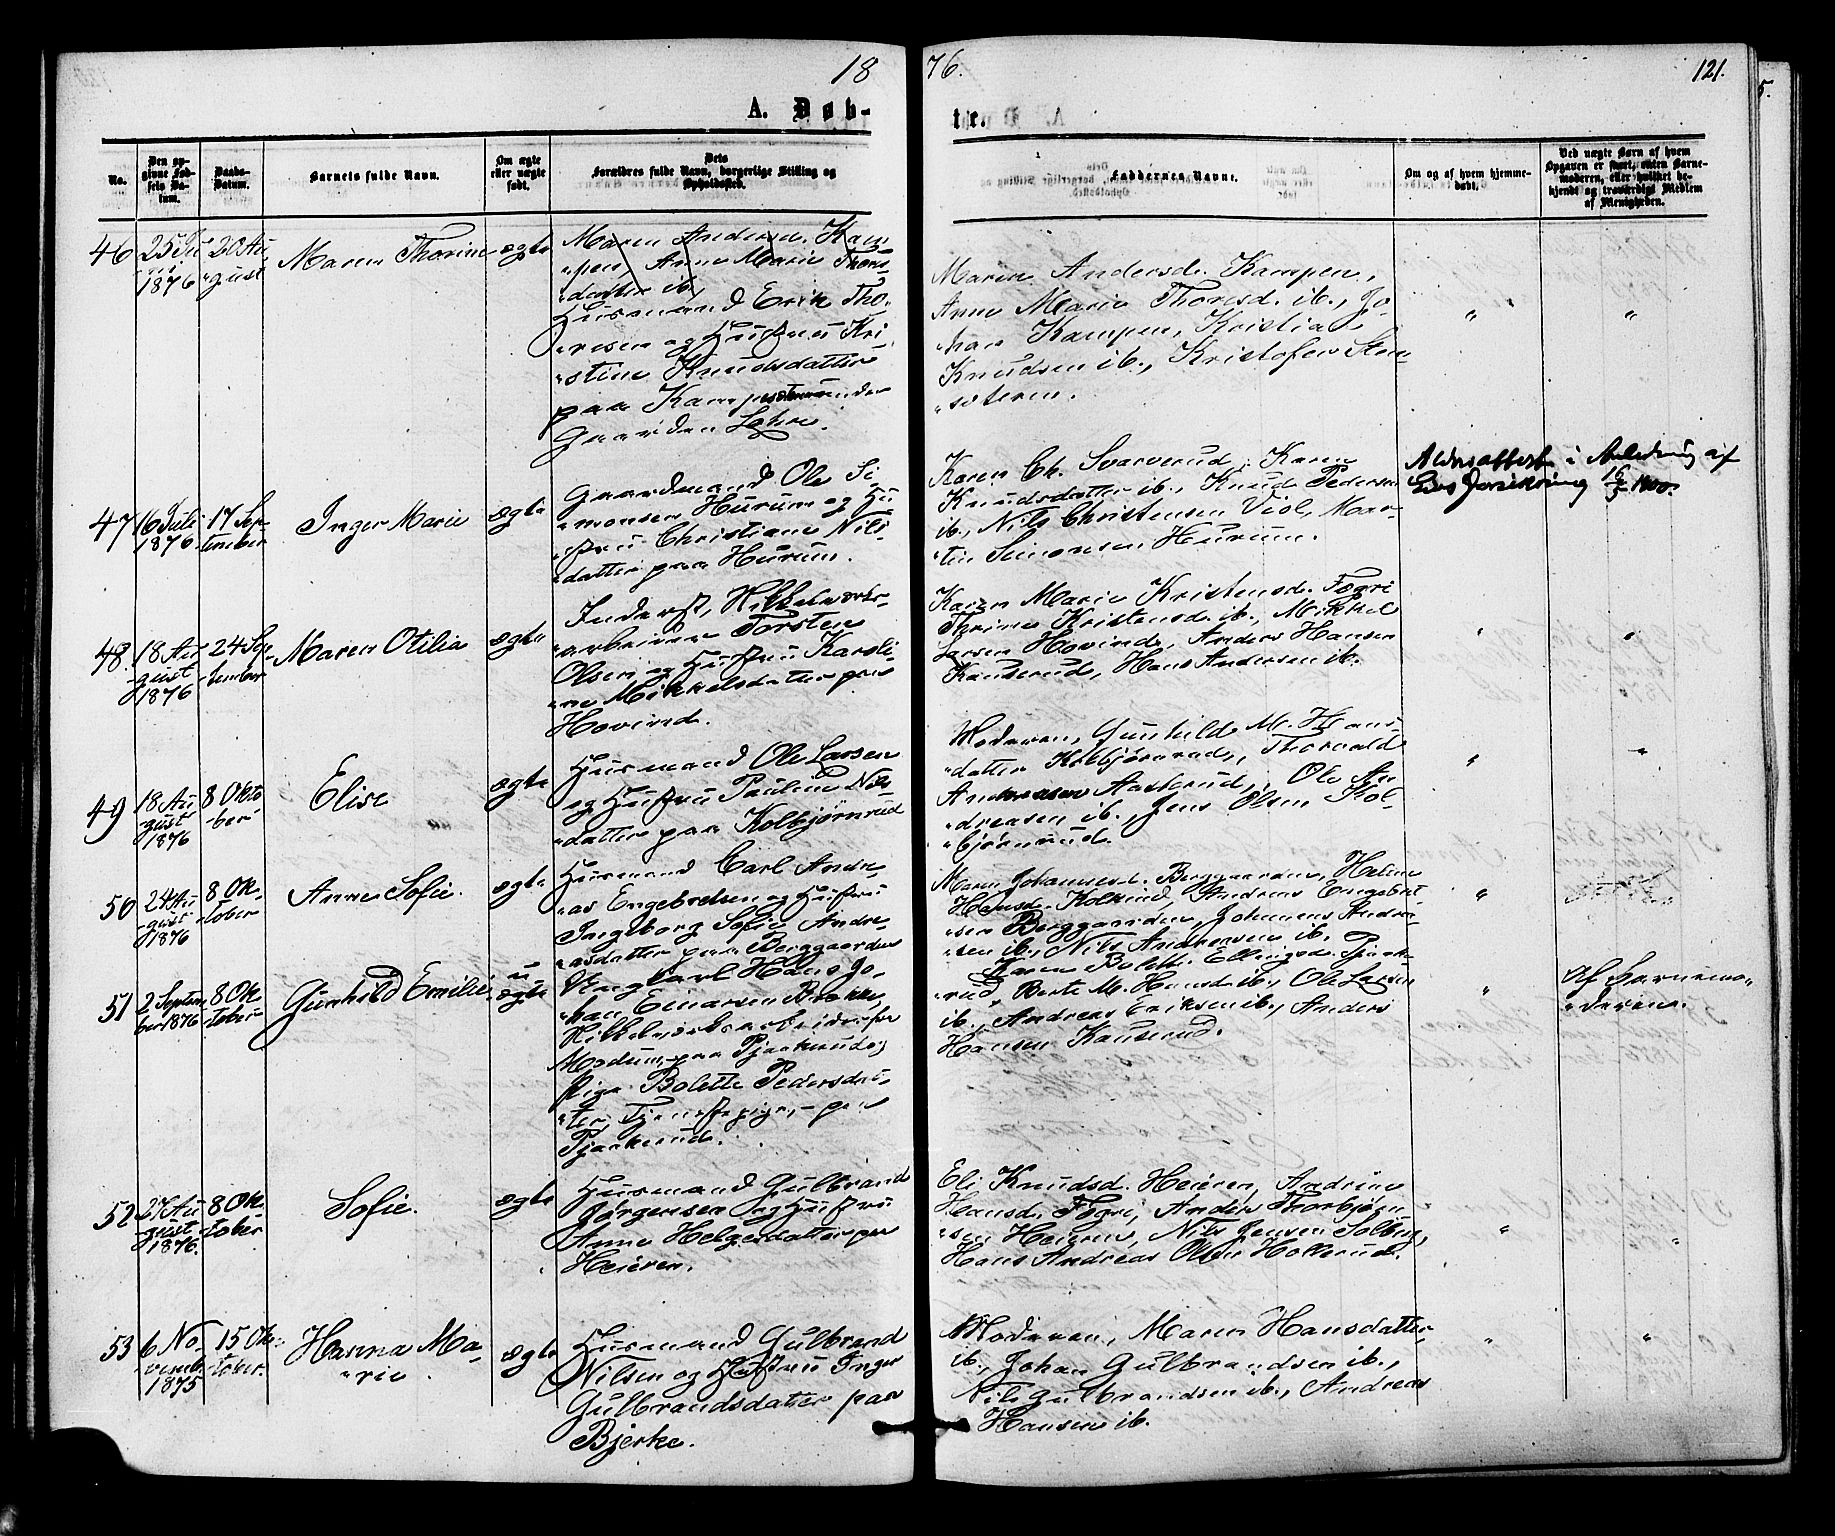 18
76.
121.
5.
A. Døb-
te.
No.
Den op-
givne Fød-
sels Da-
tum.
Daabs-
Datum.
Barnets fulde Navn.
Om ægte
eller uægte
født.
Dets
Forældres fulde Navn, borgerlige Stilling og
Opholdssted.
Faddernes Navne.
Om og af hvem hjemme-
døbt.
Ved uægte Børn af hvem
Opgaven er skeet, enten Barne-
moderen, eller hvilket be-
kjendt og troværdigt Medlem
af Menigheden.
46
25 Ju
1876
20 Au
gust
Maren Thorine
ægte
Maren Andersd. Kam
pen, Anne Marie Thores
datter ib,
Husmand Erik Tho-
resen og Hustru Kri-
stine Knudsdatter
paa Kampestuen under
Gaarden Lohre.
Maren Andersd. Kampen,
Anne Marie Thoresd. ib., Jo-
han Kampen, Kristian
Knudsen ib., Kristofer Sten-
sæteren.
"
"
47
16 Juli
1876
17 Sep-
tember
Inger Marie
ægte
Gaardmand Ole Si-
monsen Hurum og Hu
stru Christiane Nils
datter paa Hurum.
Karen Ch. Svarverud, Karen
Knudsdatter ib., Knud Pedersen
ib., Nils Christensen Viol, Mar-
tin Simonsen Hurum.
Aldersattest i Anledning af
Livsforsikring 16/5 1900.
48.
18 Au
gust
1876
24 Sep-
tember
Maren Otilia
ægte
Inderst, Nikkelværks-
arbeider Torsten
Olsen og Hustru Karoli-
ne Mikkelsdatter paa
Hovind.
Karen Marie Kristensd. Fogri
Thrine Kristensd. ib., Mikkel
Larsen Hovind, Anders Hansen
Kauserud, Hans Andersen ib.
"
"
49
18 Au
gust
1876
8 Okto
ber
Elise
ægte
Husmand Ole Larsen
og Hustru Pauline Nils-
datter paa Kolbjørnrud
Moderen, Gunhilde M. Hans-
datter Kolbjørnrud, Thorvald
Andreasen Aaslerud, Ole An
dreasen ib., Jens Olsen Kol-
bjørnrud.
"
"
50
24 Au
gust
1876
8 Ok-
tober
Anne Sofie.
ægte
Husmand Carl Andre
as Engebretsen og Hustru
Ingeborg Sofie Andre
asdatter paa Berggaarden
Maren Johannesd. Berggaarden, Helene
Hansd. Kolsrud, Andreas Engebret-
sen Berggaarden, Johannes Andrea
sen ib., Nils Andreasen ib.
"
51
2 Septem
ber 1876
8 Ok
tober
Gunhild Emilie.
u
ægte
Ungkarl Hans Jo-
han Emarsen Brække,
Nikkelværksarbeider fra
Modum paa Tjaakrud og
Pige Bolette Pedersdat-
ter, Tjenestepige, paa
Tjaakrud.
Karen Bolette Ellingsd. Tjaak-
rud, Berte M. Hansd. ib., Ole Larsen
ib., Andreas Eriksen ib., Anders
Hansen Kauserud.
"
Af Barnemo-
deren.
52
27 Au
gust
1876.
8 Ok-
tober
Sofie.
ægte
Husmand Gulbrand
Jørgensen og Hustru
Anne Helgesdatter paa
Heieren.
Eli Knudsd. Heieren, Andrine
Hansd. Fogri, Anders Thorbjørn
sen Heieren, Nils Jensen Solberg,
Hans Andreas Olsen Hollerud.
"
"
53
6 No
vemb
1875
15 Ok-
tober.
Hanna Ma-
rie.
ægte
Husmand Gulbrand
Nilsen og Hustru Inger
Gulbrandsdatter paa
Bjerke.
Moderen, Maren Hansdatter
ib., Johan Gulbrandsen ib.,
Nils Gulbrandsen ib., Andreas
Hansen ib.
"
"